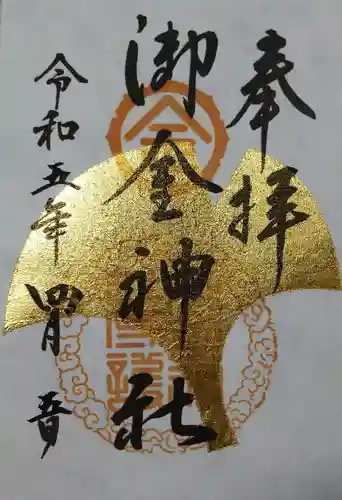 奉拝
御金神社
令和五年四月一日